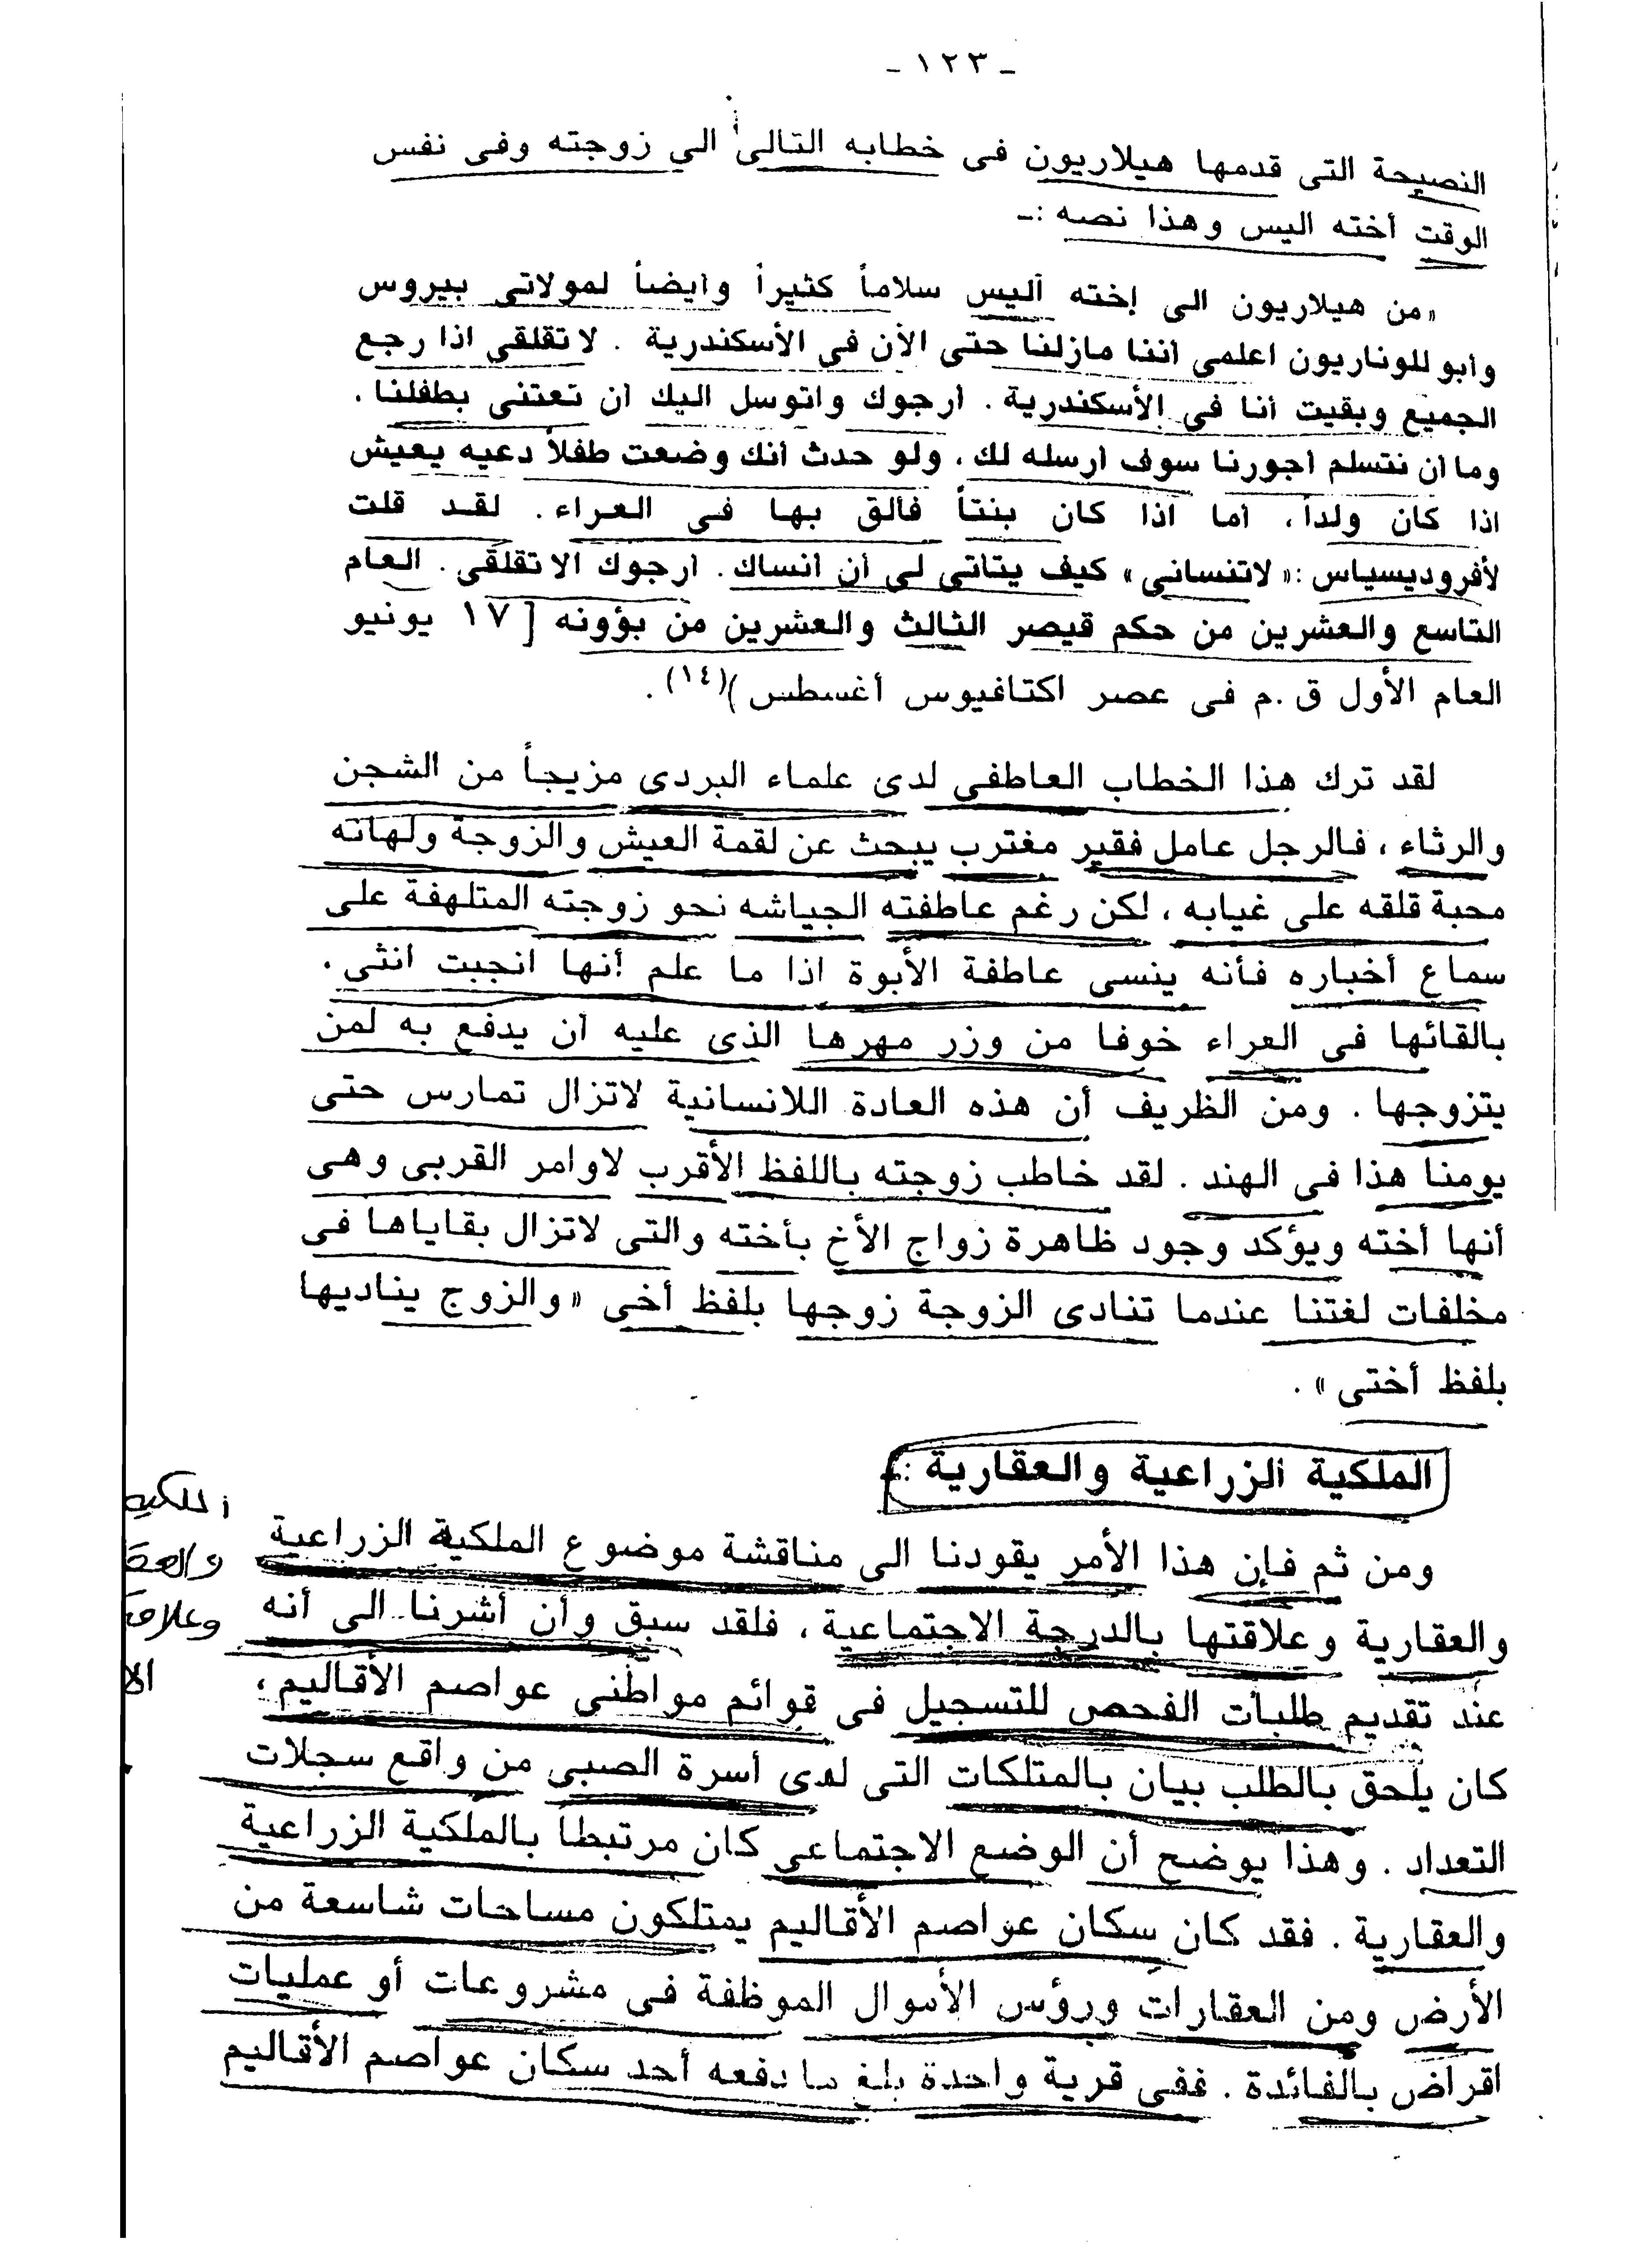 - ١٢٣ -
النصيحة التى قدمها هيلاريون فى خطابه التالى الي زوجته وفى نفس
الوقت أخته اليس وهذا نصه :-
« من هيلاريون الى إخته آليس سلاماً كثيراً وأيضاً لمولاتى بيروس
وأبو للوناريون اعلمى أننا مازلنا حتى الأن فى الأسكندرية . لاتقلقى اذا رجع
الجميع وبقيت أنا فى الأسكندرية . أرجوك واتوسل اليك أن تعتنى بطفلنا .
وما أن نتسلم أجورنا سوف أرسله لك ، ولو حدث أنك وضعت طفلاً دعيه يعيش
اذا كان ولداً ، أما اذا كان بنتاً فألق بها فى العراء . لقد قلت
لأفروديسياس :« لاتنسانى » كيف يتاتى لى أن أنساك . أرجوك الاتقلقى . العام
التاسع والعشرين من حكم قيصر الثالث والعشرين من بؤونه [ ١٧ يونيو
العام الأول ق .م فى عصر اكتافيوس أغسطس )(١٤) .
لقد ترك هذا الخطاب العاطفى لدى علماء البردى مزيجاً من الشجن
والرثاء ، فالرجل عامل فقير مغترب يبحث عن لقمة العيش والزوجة ولهانه
محبة قلقه على غيابه ، لكن رغم عاطفته الجياشه نحو زوجته المتلهفة على
سماع أخباره فأنه ينسى عاطفة الأبوة اذا ما علم أنها انجبت انثى .
بالقائها فى العراء خوفا من وزر مهرها الذى عليه أن يدفع به لمن
يتزوجها . ومن الظريف أن هذه العادة اللانسانية لاتزال تمارس حتى
يومنا هذا فى الهند . لقد خاطب زوجته باللفظ الأقرب لاوامر القربى وهى
أنها أخته ويؤكد وجود ظاهرة زواج الأخ بأخته والتى لاتزال بقاياها فى
مخلفات لغتنا عندما تنادى الزوجة زوجها بلفظ أخى « والزوج يناديها
بلفظ أختى » .
الملكية الزراعية والعقارية :-
ومن ثم فإن هذا الأمر يقودنا الى مناقشة موضوع الملكية الزراعية
والعقارية وعلاقتها بالدرجة الاجتماعية ، فلقد سبق وأن أشرنا الى أنه
عند تقديم طلبات الفحص للتسجيل فى قوائم مواطنى عواصم الأقاليم ،
كان يلحق بالطلب بيان بالمتلكات التى لدى أسرة الصبى من واقع سجلات
التعداد . وهذا يوضح أن الوضع الاجتماعى كان مرتبطاً بالملكية الزراعية
والعقارية . فقد كان سكان عواصم الأقاليم يمتلكون مساحات شاسعة من
الأرض ومن العقارات ورؤس الأموال الموظفة فى مشروعات أو عمليات
اقراض بالفائدة . ففى قرية واحدة بلغ ما دفعه أحد سكان عواصم الأقاليم